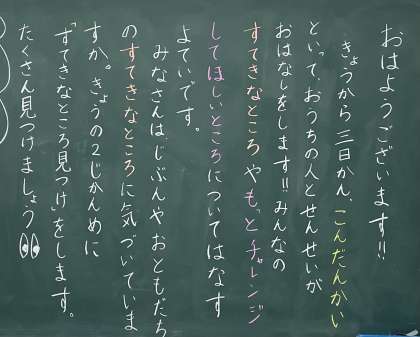 おはようございます!!
きょうから三日かん、こんだんかい
といって、おうちの人とせんせいが
おはなしをします!!みんなの
すてきなところやもっとチャレンジ
してほしいところについてはなす
よていです。
みなさんはじぶんやおともだち
のすてきなところに気づいていま
すか。きょうの2じかんめに
「すてきなところ見つけ」をします。
たくさん見つけましょう